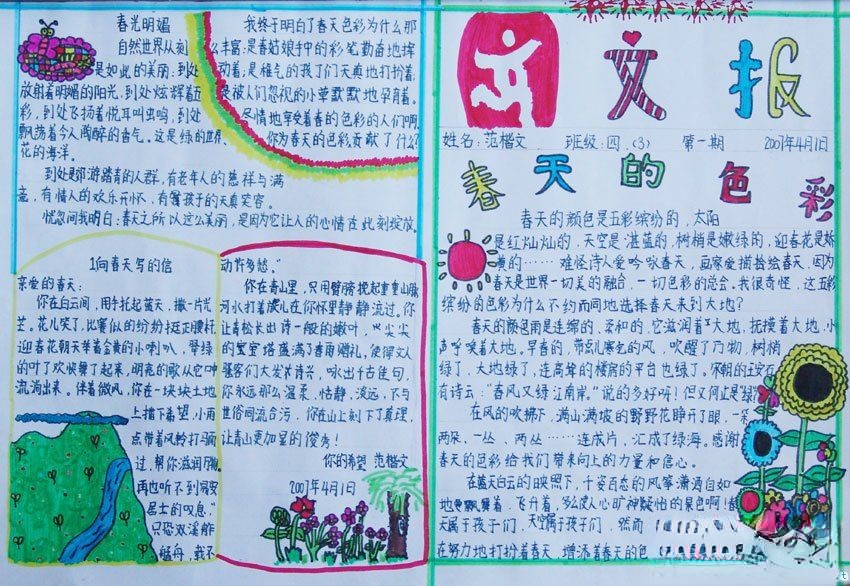 春光明媚
自然世界从刻
是如此的美丽,到处
放射着明媚的阳光,到处炫辉着五
彩,到处飞扬着悦耳叫虫鸣,到处
飘荡着令人陶醉的香气。这是绿的世界,
花的海洋。
到处是郊游踏青的人群,有老年人的慈祥与满
有情人的欢乐开怀,有着孩子的天真笑容。
恍忽间我明白:春天之所以这么美丽,是因为它让人的心情在此刻绽放。
我终于明白了春天色彩为什么那
么丰富:是春姑娘手中的彩笔勤奋地挥
动着;是稚气的孩子们天真地打扮着;
是被人们忽视的小草默默地孕育着。
尽情地享受着春的色彩的人们啊,
你为春天的色彩贡献了什么?
1向春天写的信
亲爱的春天:
你在白云间,用手托起蓝天,撒一片光
芒。花儿笑了,比赛似的纷纷挺正腰杆
迎春花朝天举着金黄的小喇叭,翠绿
的叶了欢快舞了起来,明亮的歌从它中
流淌出来。伴着微风,你在一块块土地
上播下希望,小雨
点带着风铃打马而
过,帮你滋润万物
再也听不到易安
居士的叹息。"
只恐双溪舴
艋舟,载不
动许多愁。"
你在青山里,只用臂膀挽起重重山脉
河水打着旋儿在你怀里静静流过。你
让青松长出诗一般的嫩叶,
大发诗兴,咏出千古佳句,
你永远那么温柔,恬静,淡远,不与
世俗同流合污,你在山上刻下了真理,
让青山更加显的俊秀!
你的希望 范楷文
2007年4月1日
语文报
姓名:范楷文 班级:四.(3) 第一期 2007年4月1日
春天的色彩
春天的颜色是五彩缤纷的,太阳
是红灿灿的,天空是湛蓝的,树梢是嫩绿的,迎春花是娇
黄的……难怪诗人爱吟咏春天,画家爱描摹绘春天,因为
春天是世界一切美的融合,一切色彩的总会。我很奇怪,这五彩
缤纷的色彩为什么不约而同地选择春天来到大地?
春天的颜色雨是连绵的、柔和的,它滋润着大地,抚摸着大地,小
声呼唤着大地。早春的,带点儿寒乞的风,吹醒了万物,树梢
绿了,大地绿了,连高耸的楼房的平台也绿了。宋朝的王安石
有诗云:"春风又绿江南岸。"说的多好呀!但又何止是"绿
在风的吹拂下,满山满坡的野野花睁开了眼,一朵、
两朵、一丛、两丛……连成片,汇成了绿海。感谢
春天的色彩给我们带来向上的力量和信心。
在蓝天白云的映照下,千姿百态的风筝潇洒自如
地飘舞着,飞升着,多么使人心旷神疑怡的景色啊!春
天属于孩子们,天空属于孩子们,然而
在努力地打扮着春天,增添着春天的色